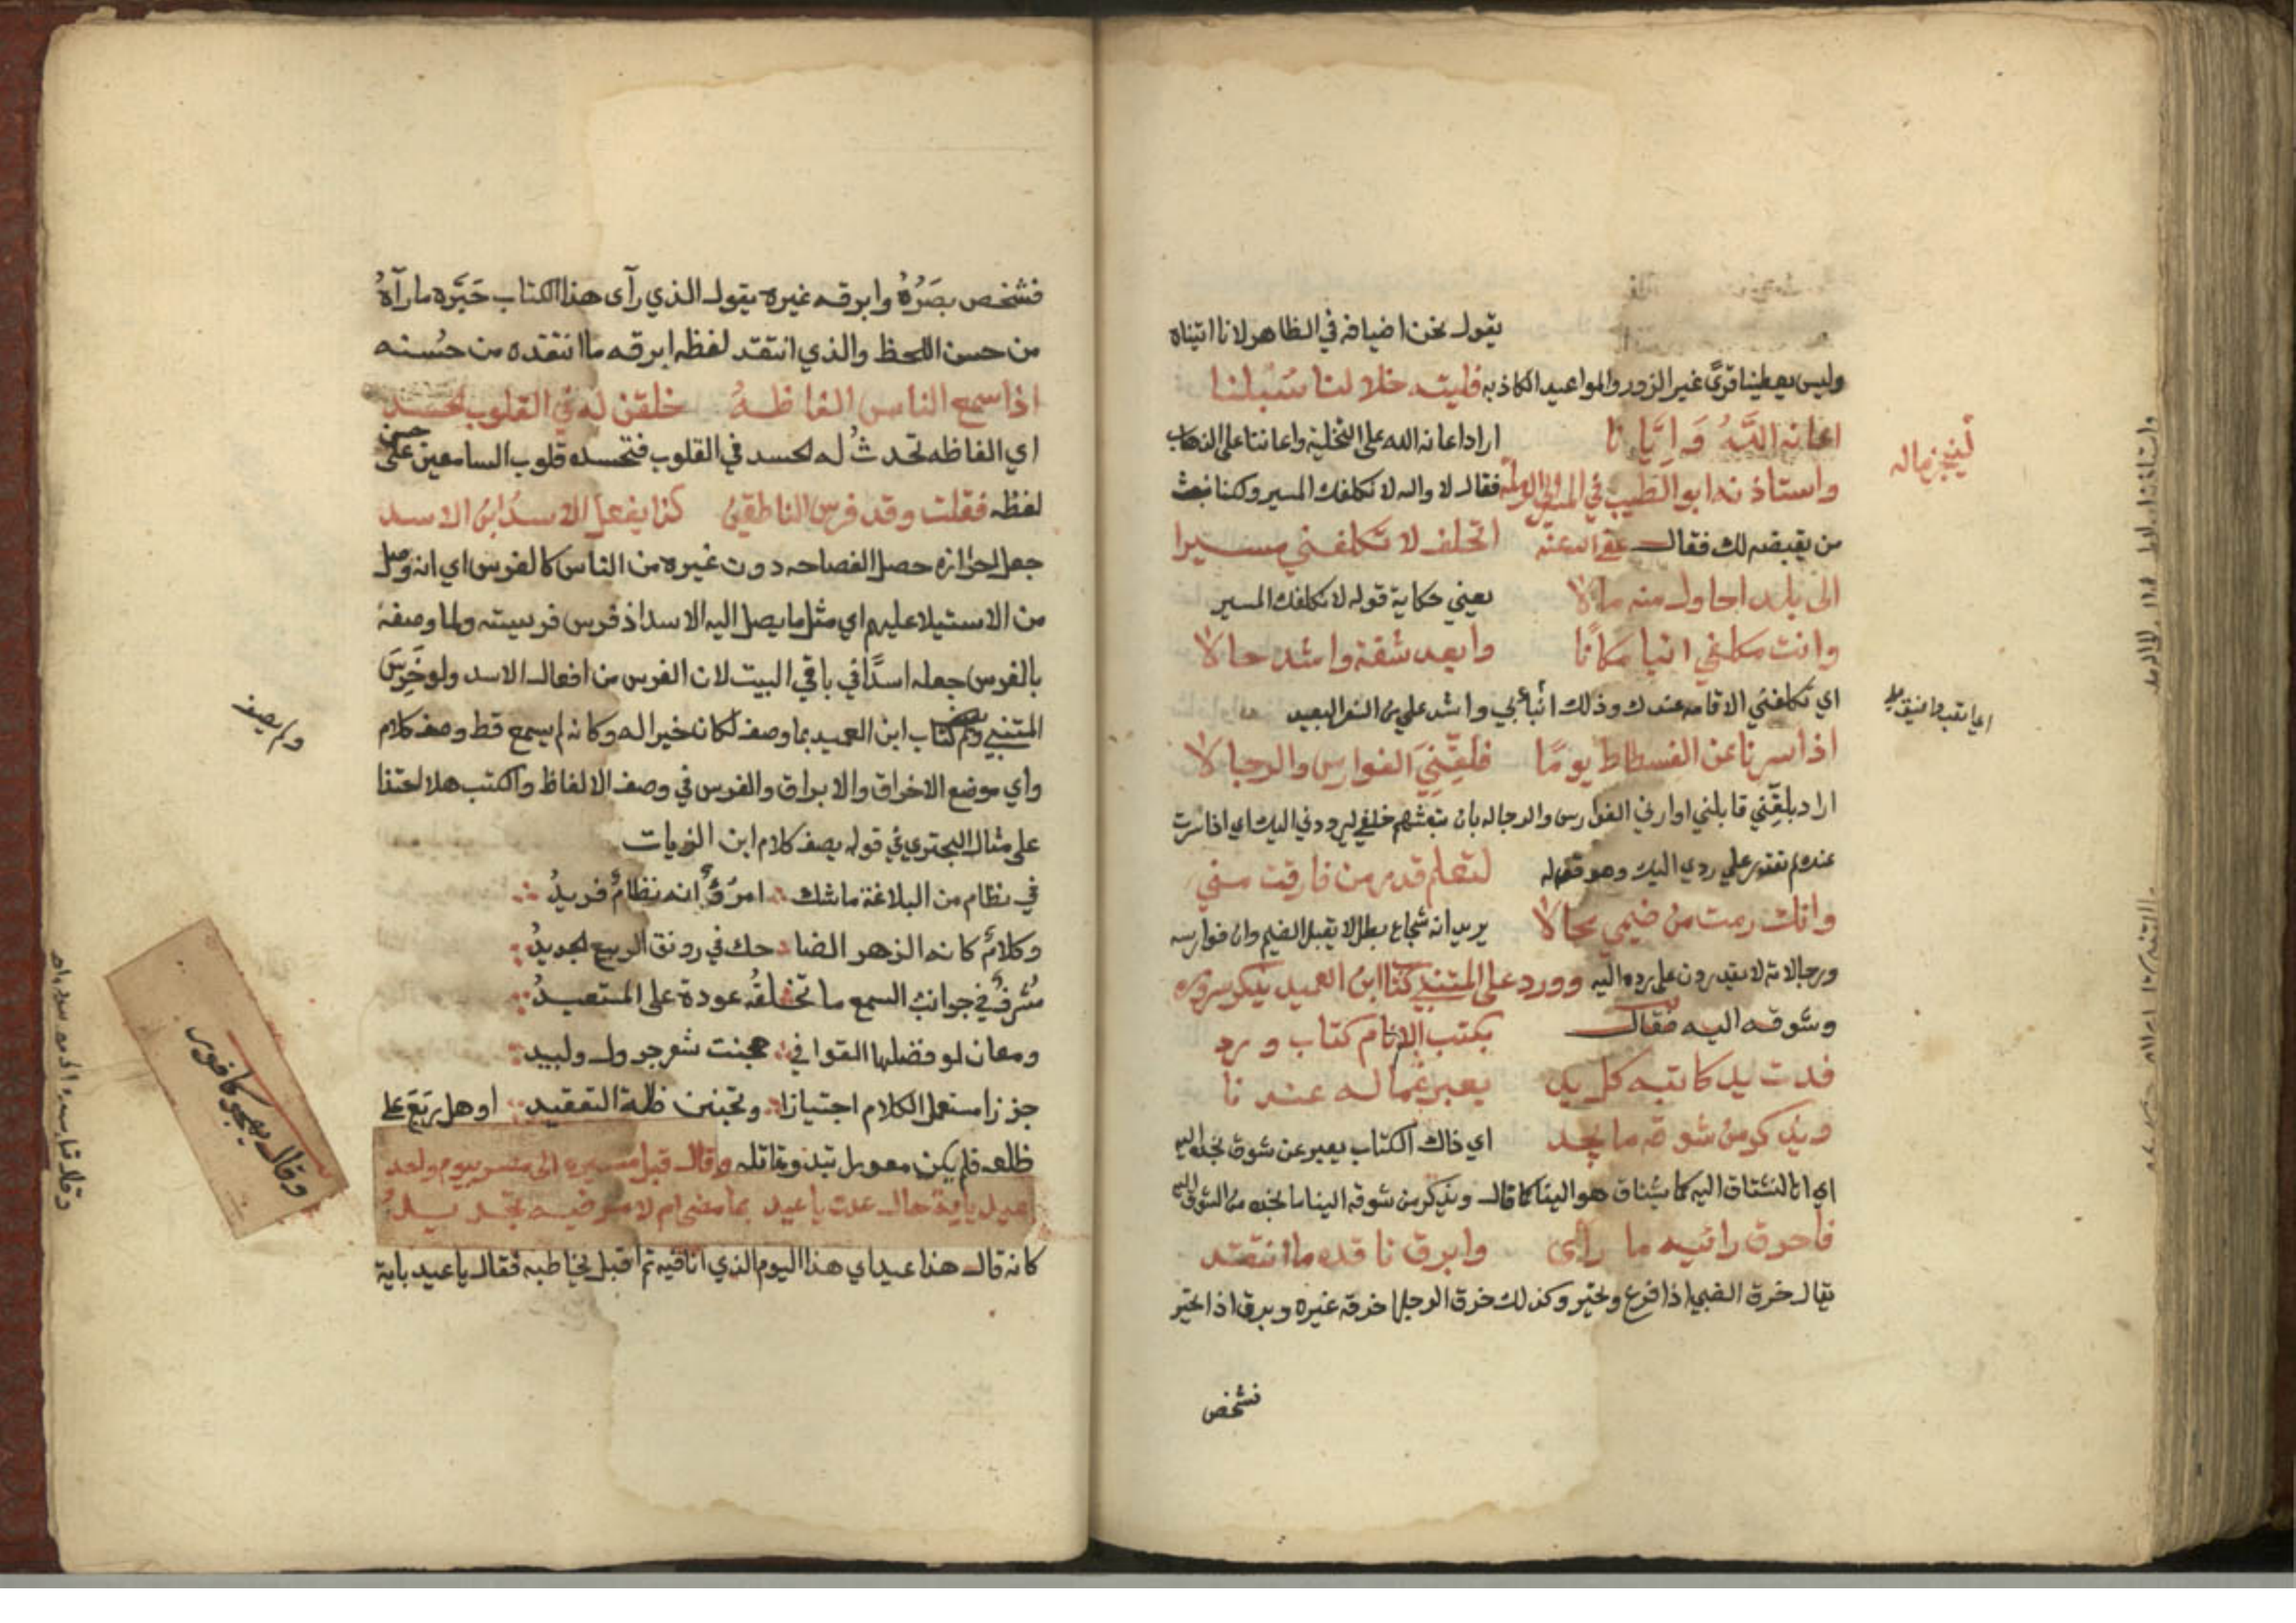 يقول نحن اضيافه في الظاهر لانا اتيناه
وليس يعطينا قرًى غير الزور والمواعيد الكاذبه فليته خلا لنا سُبلنا
اعانه اللَّهُ وَاِيَّانا اراد اعانه الله على التخلية واعاننا على الذهاب
واستاذنه ابو الطيب في المسير الى الرملة فقال لا والله لا نكلفك المسير ولكنا نبعث
لينجز ماله
من يقبضه لك فقال عفى الله عنه اتحلف لا تكلفني مسيرا
الى بلد احاول منه مالا يعني حكاية قوله لا نكلفك المسير
وانت مكلفي انبا مكانًا وابعد شقة واشد حالا
اي تكلفني الاقامه عندك وذلك انبأ بي واشد علي من السفر البعيد
اذا سرنا عن الفسطاط يومًا فلقِّنِي الفوارس والرجالا
اراد بلقِّني قابلني او ارني الفوارس والرجاله بان تبعثهم خلفي ليردوني اليك اي اذا سرت
عندكم تقدر علي ردي اليك وهو قوله لتعلم قدر من فارقت مني
وانك رمت من ضيمي محالا يريد انه شجاع بطل لا يقبل الضيم وان فوارسه
ورجالاته لا يقدرون على رده اليه وورد على المتنبي كتاب ابن العميد يذكر سروره
وشوقه اليه فقال بكتب الانام كتاب ورد
فدت يد كاتبه كل يد يعبر عما له عندنا
ويذكر من شوقه ما نجد اي ذاك الكتاب يعبر عن شوق نجده اليه
اي انا نشتاق اليه كما يشتاق هو الينا كما قال ويذكر من شوقه الينا ما نجده من الشوق اليه
فاخرق رائيه ما رأى وابرق ناقده ما انتقد
يقال خرق الظبي اذا فزع وتحير وكذلك خرق الرجل اخرقه غيره وبرق اذا تحير
فشخص
فشخص بصَرُهُ وابرقه غيره يقول الذي رآى هذا الكتاب حَيَّره ما رآهُ
من حسن اللحظ والذي انتقد لفظه ابرقه ما انتقده من حُسنه
اذا سمع الناس الفاظهُ خلقن له في القلوب الحسد
اي الفاظه تحدثُ له الحسد في القلوب فتحسده قلوب السامعين على حسن
لفظه فقلت وقد فرس الناطقين كذا يفعل الاسدُ ابن الاسد
جعل احرازه خصل الفصاحه دون غيره من الناس كالفرس اي انه وصل
من الاستيلا عليهم اي مثل ما يصل اليه الاسد اذ فرس فريسته ولما وصفه
بالفرس جعله اسدًا في باقي البيت لان الفرس من افعال الاسد ولو خَرِسَ
المتنبي ولم يصف كتاب ابن العميد بما وصف لكان خيرا له وكانه لم يسمع قط وصف كلام
ولم يصف
واي موضع الاخراق والابراق والفرس في وصف الالفاظ والكتب هلا احتذا
على مثال البحتري في قوله يصف كلام ابن الزيات
في نظام من البلاغة ما شك امرؤٌ انه نظامٌ فريدُ
وكلامٌ كانه الزهر الضاحك في رونق الربيع الجديدُ
مُشرقٌ في جوانب السمع ما تخلقُه عودة على المستعيدُ
ومعان لو فضلها القوافي هجنت شعر جرول ولبيد
حزن مستعمل الكلام اختيارا وتجنبن ظلمة التعقيد او هل يَرْبَع على
ظلعه فلم يكن معول تبذو مقاتله وقال قبل مسيره الى مصر بيوم واحد
وقال يهجو كافور
عيد باية حال عدت يا عيد بما مضى ام لامر فيه تجديدُ
كانه قال هذا عيد اي هذا اليوم الذي انا فيه ثم اقبل يخاطبه فقال يا عيد باية